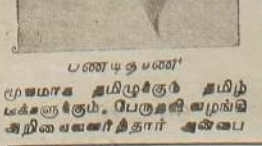 பண்டிதமணி
மூலமாக தமிழுக்கும் தமிழ்
மக்களுக்கும் பேருதவி வழங்கி
அறிவைவளர்த்தார் அன்பை